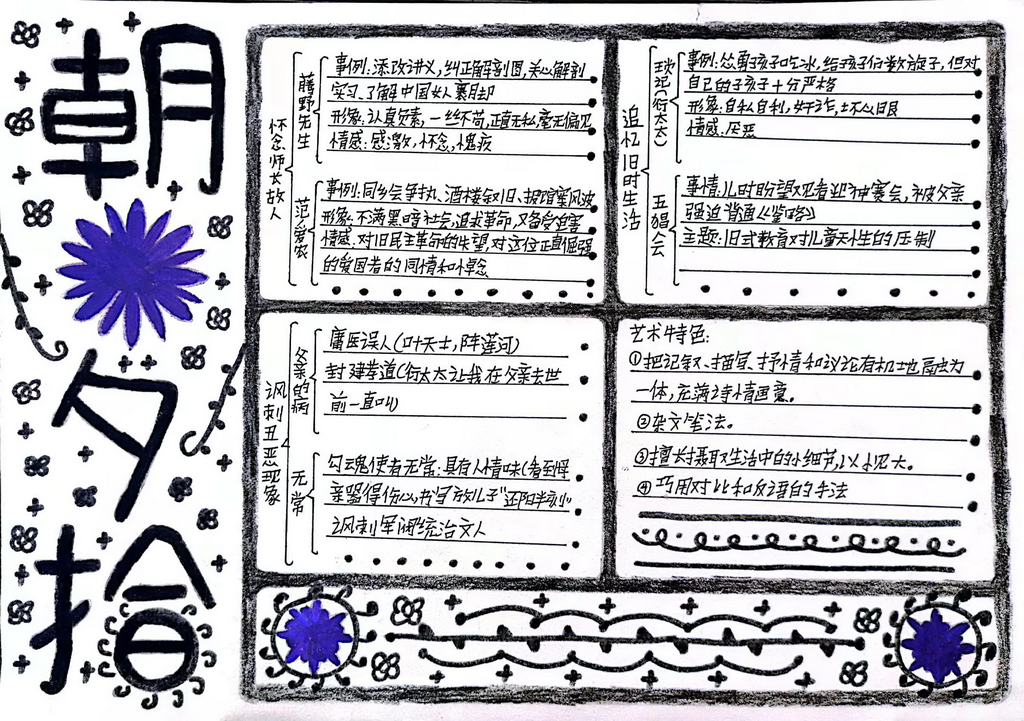 朝
夕
拾
怀念师长故人
藤野先生
事例:添改讲义,纠正解剖图,关心解剖
实习,了解中国女人裹脚
形象:认真负责,一丝不苟,正直无私毫无偏见
情感:感激,怀念,愧疚
范爱农
事例:同乡会争执、酒楼叙旧、报馆案风波
形象:不满黑暗社会,追求革命,又备受迫害
情感:对旧民主革命的失望,对这位正直倔强
的爱国者的同情和悼念
追忆旧时生活
琐记(衍太太)
事例:怂恿孩子吃冰,给孩子们数旋子,但对
自己的子孩子十分严格
形象:自私自利,奸诈,坏心眼
情感:厌恶
五猖会
事情:儿时盼望观看迎神赛会,被父亲
强迫背诵《鉴略》
主题:旧式教育对儿童天性的压制
讽刺丑恶现象
父亲的病
庸医误人(叶天士,陈莲河)
封建孝道(衍太太让我在父亲去世
前一直叫)
无常
勾魂使者无常:具有人情味(看到怪
亲哭得伤心,书写放儿子"还阳半刻"
讽刺军阀统治文人
艺术特色:
①把记叙、描写、抒情和议论有机地融为
一体,充满诗情画意。
②杂文笔法。
③擅长摄取生活中的小细节,以小见大。
④巧用对比和反语的手法